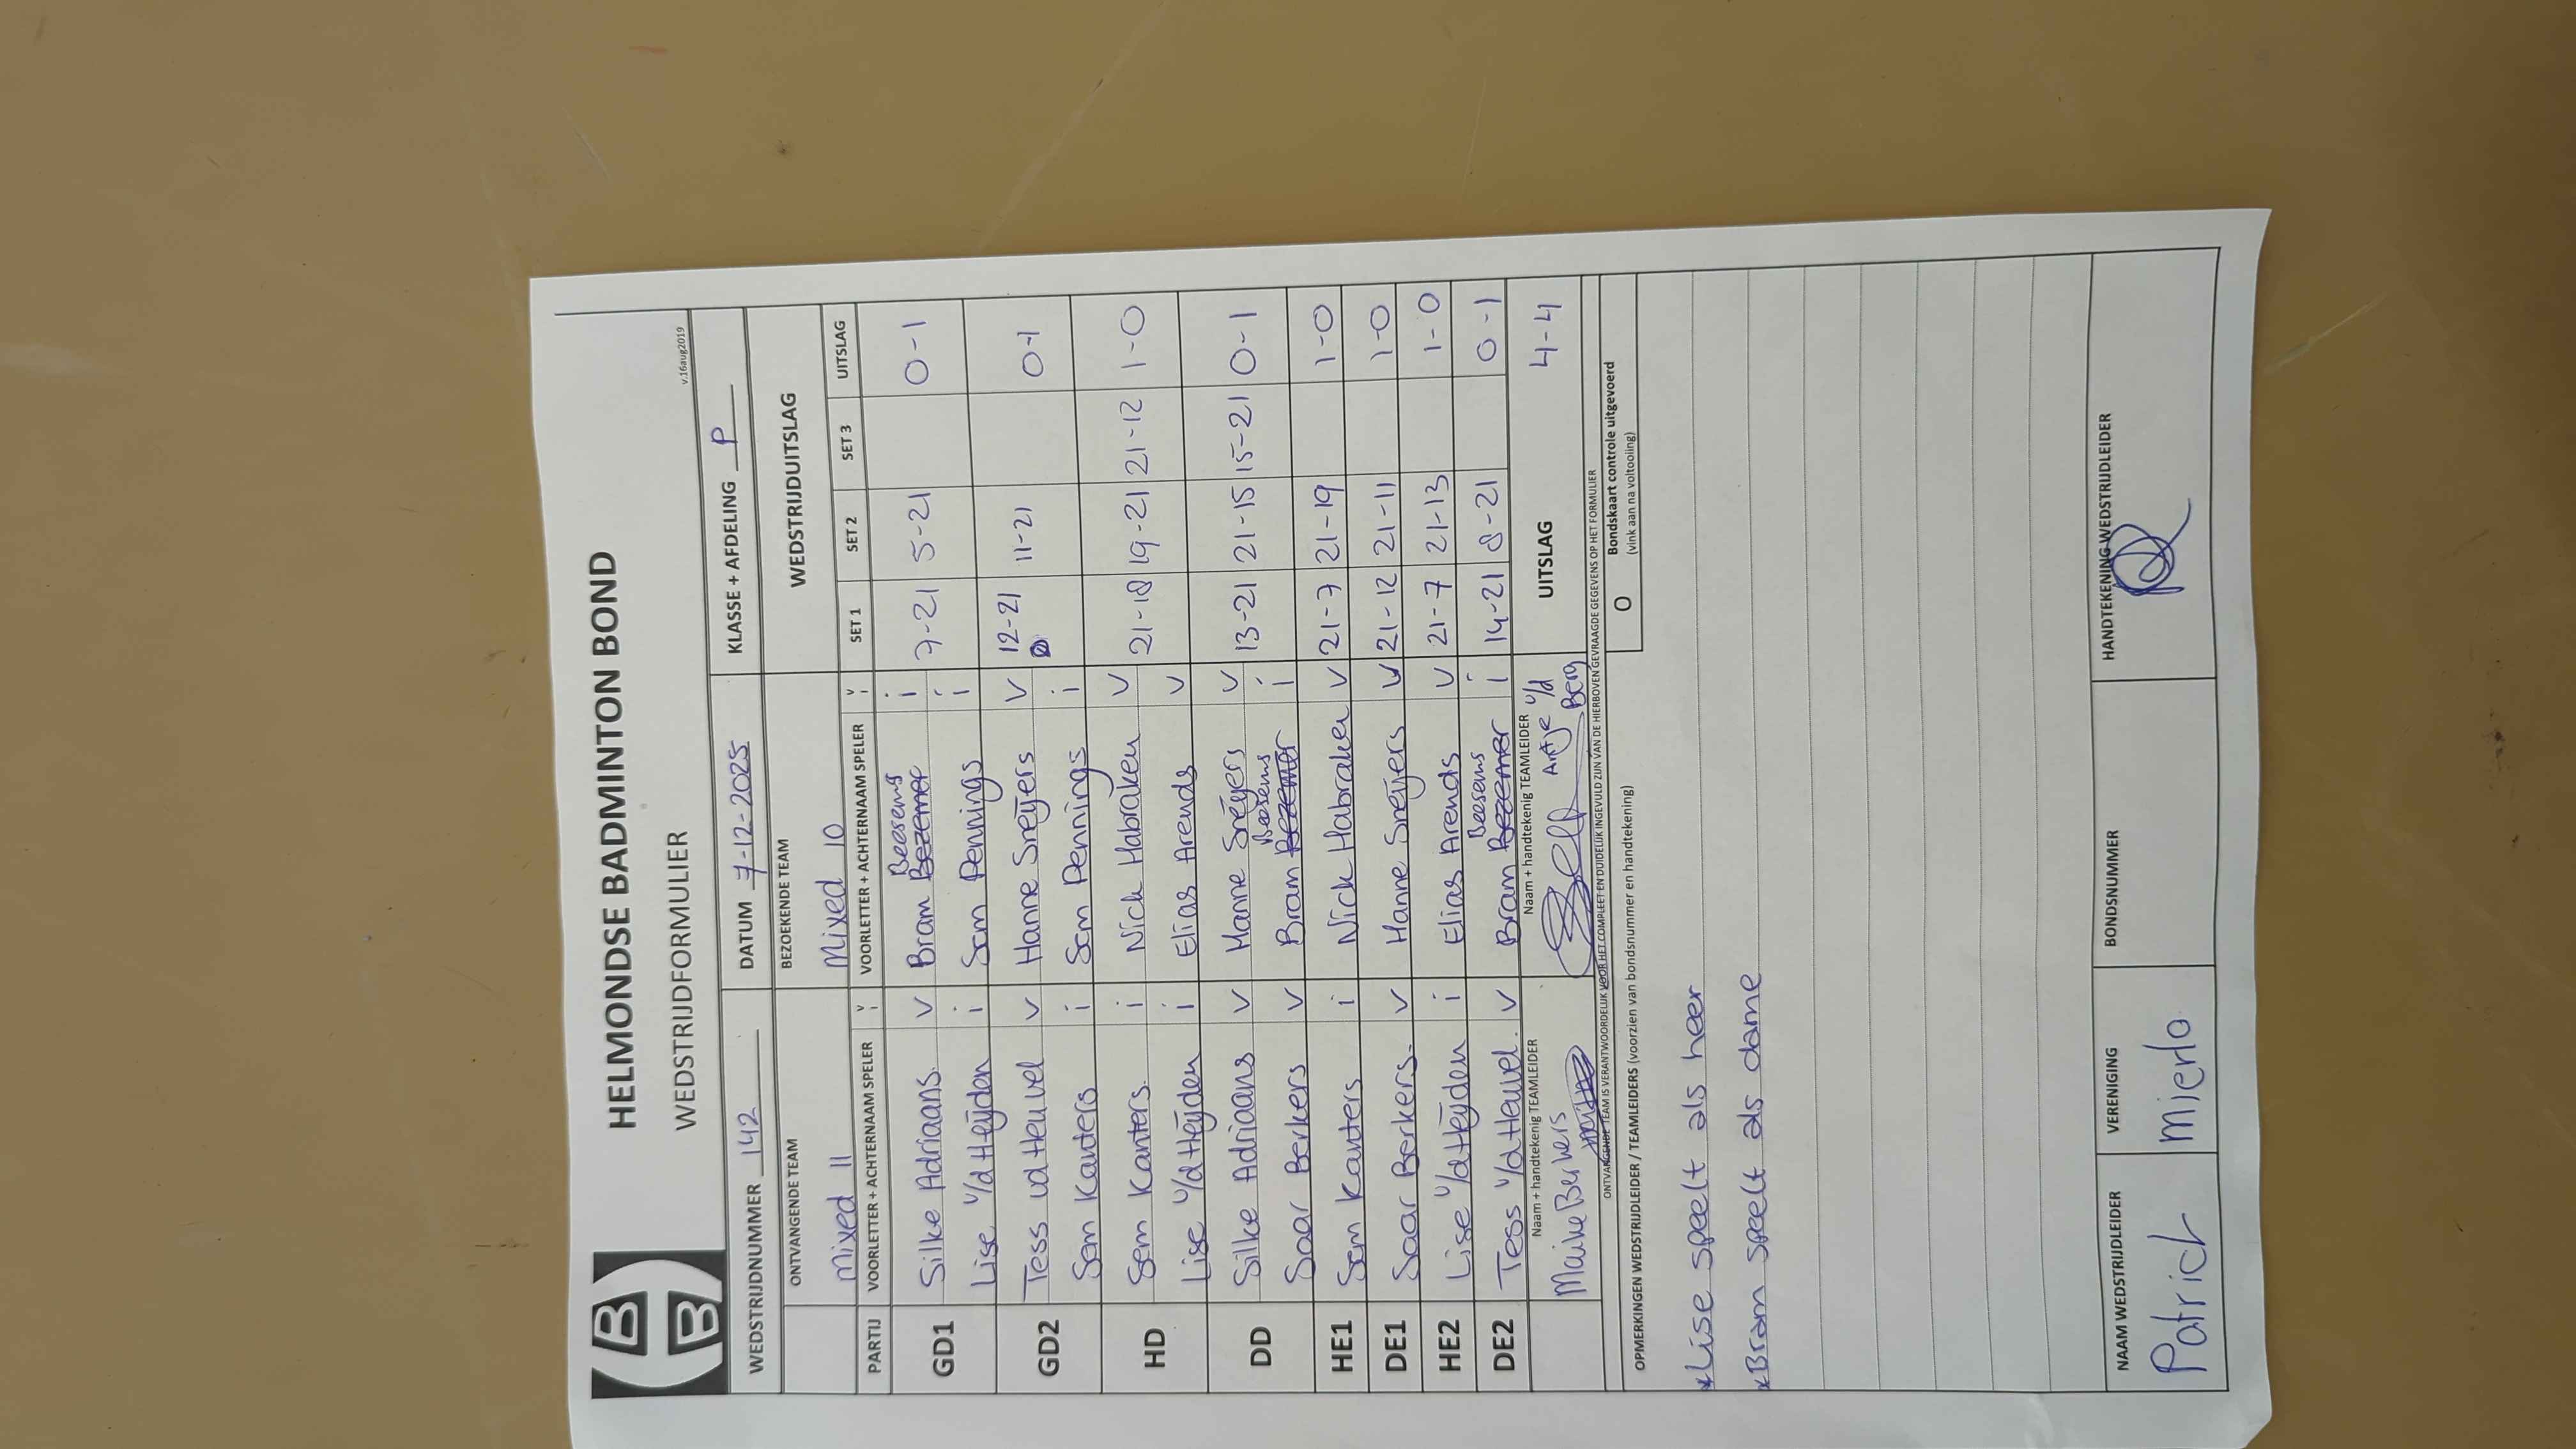 HELMONDSE BADMINTON BOND
WEDSTRIJDFORMULIER
v.16aug2019
WEDSTRIJDNUMMER 142 DATUM 7-12-2025 KLASSE + AFDELING P
ONTVANGENDE TEAM BEZOEKENDE TEAM WEDSTRIJDUITSLAG
Mixed 11 Mixed 10
PARTIJ VOORLETTER + ACHTERNAAM SPELER V i VOORLETTER + ACHTERNAAM SPELER V i SET 1 SET 2 SET 3 UITSLAG
Beesems
GD1 Silke Adriaans. V Bram Bezemer i 7-21 5-21 0-1
Lise v/d Heijden i Sem Pennings i
GD2 Tess vd Heuvel V Hanne Sneijers V 12-21 11-21 0-1
Sem Kanters i Sem Pennings i
HD Sem Kanters. i Nick Habraken V 21-18 19-21 21-12 1-0
Lise v/d Heijden i Elias Arends V
DD Silke Adriaans V Hanne Sneijers V 13-21 21-15 15-21 0-1
Beesems
Saar Berkers V Bram Bezemer i
HE1 Sem Kanters. i Nick Habraken V 21-7 21-19 1-0
DE1 Saar Berkers. V Hanne Sneijers V 21-12 21-11 1-0
HE2 Lise v/d Heijden i Elias Arends V 21-7 21-13 1-0
Beesems
DE2 Tess v/d Heuvel. V Bram Bezemer i 14-21 8-21 0-1
Naam + handtekenig TEAMLEIDER Naam + handtekenig TEAMLEIDER UITSLAG 4-4
Maike Berkers Antje v/d Berg
ONTVANGENDE TEAM IS VERANTWOORDELIJK VOOR HET COMPLEET EN DUIDELIJK INGEVULD ZIJN VAN DE HIERBOVEN GEVRAAGDE GEGEVENS OP HET FORMULIER
OPMERKINGEN WEDSTRIJDLEIDER / TEAMLEIDERS (voorzien van bondsnummer en handtekening) O Bondskaart controle uitgevoerd
(vink aan na voltooling)
*Lise speelt als heer
*Bram speelt als dame
NAAM WEDSTRIJDLEIDER VERENIGING BONDSNUMMER HANDTEKENING WEDSTRIJDLEIDER
Patrick Mierlo